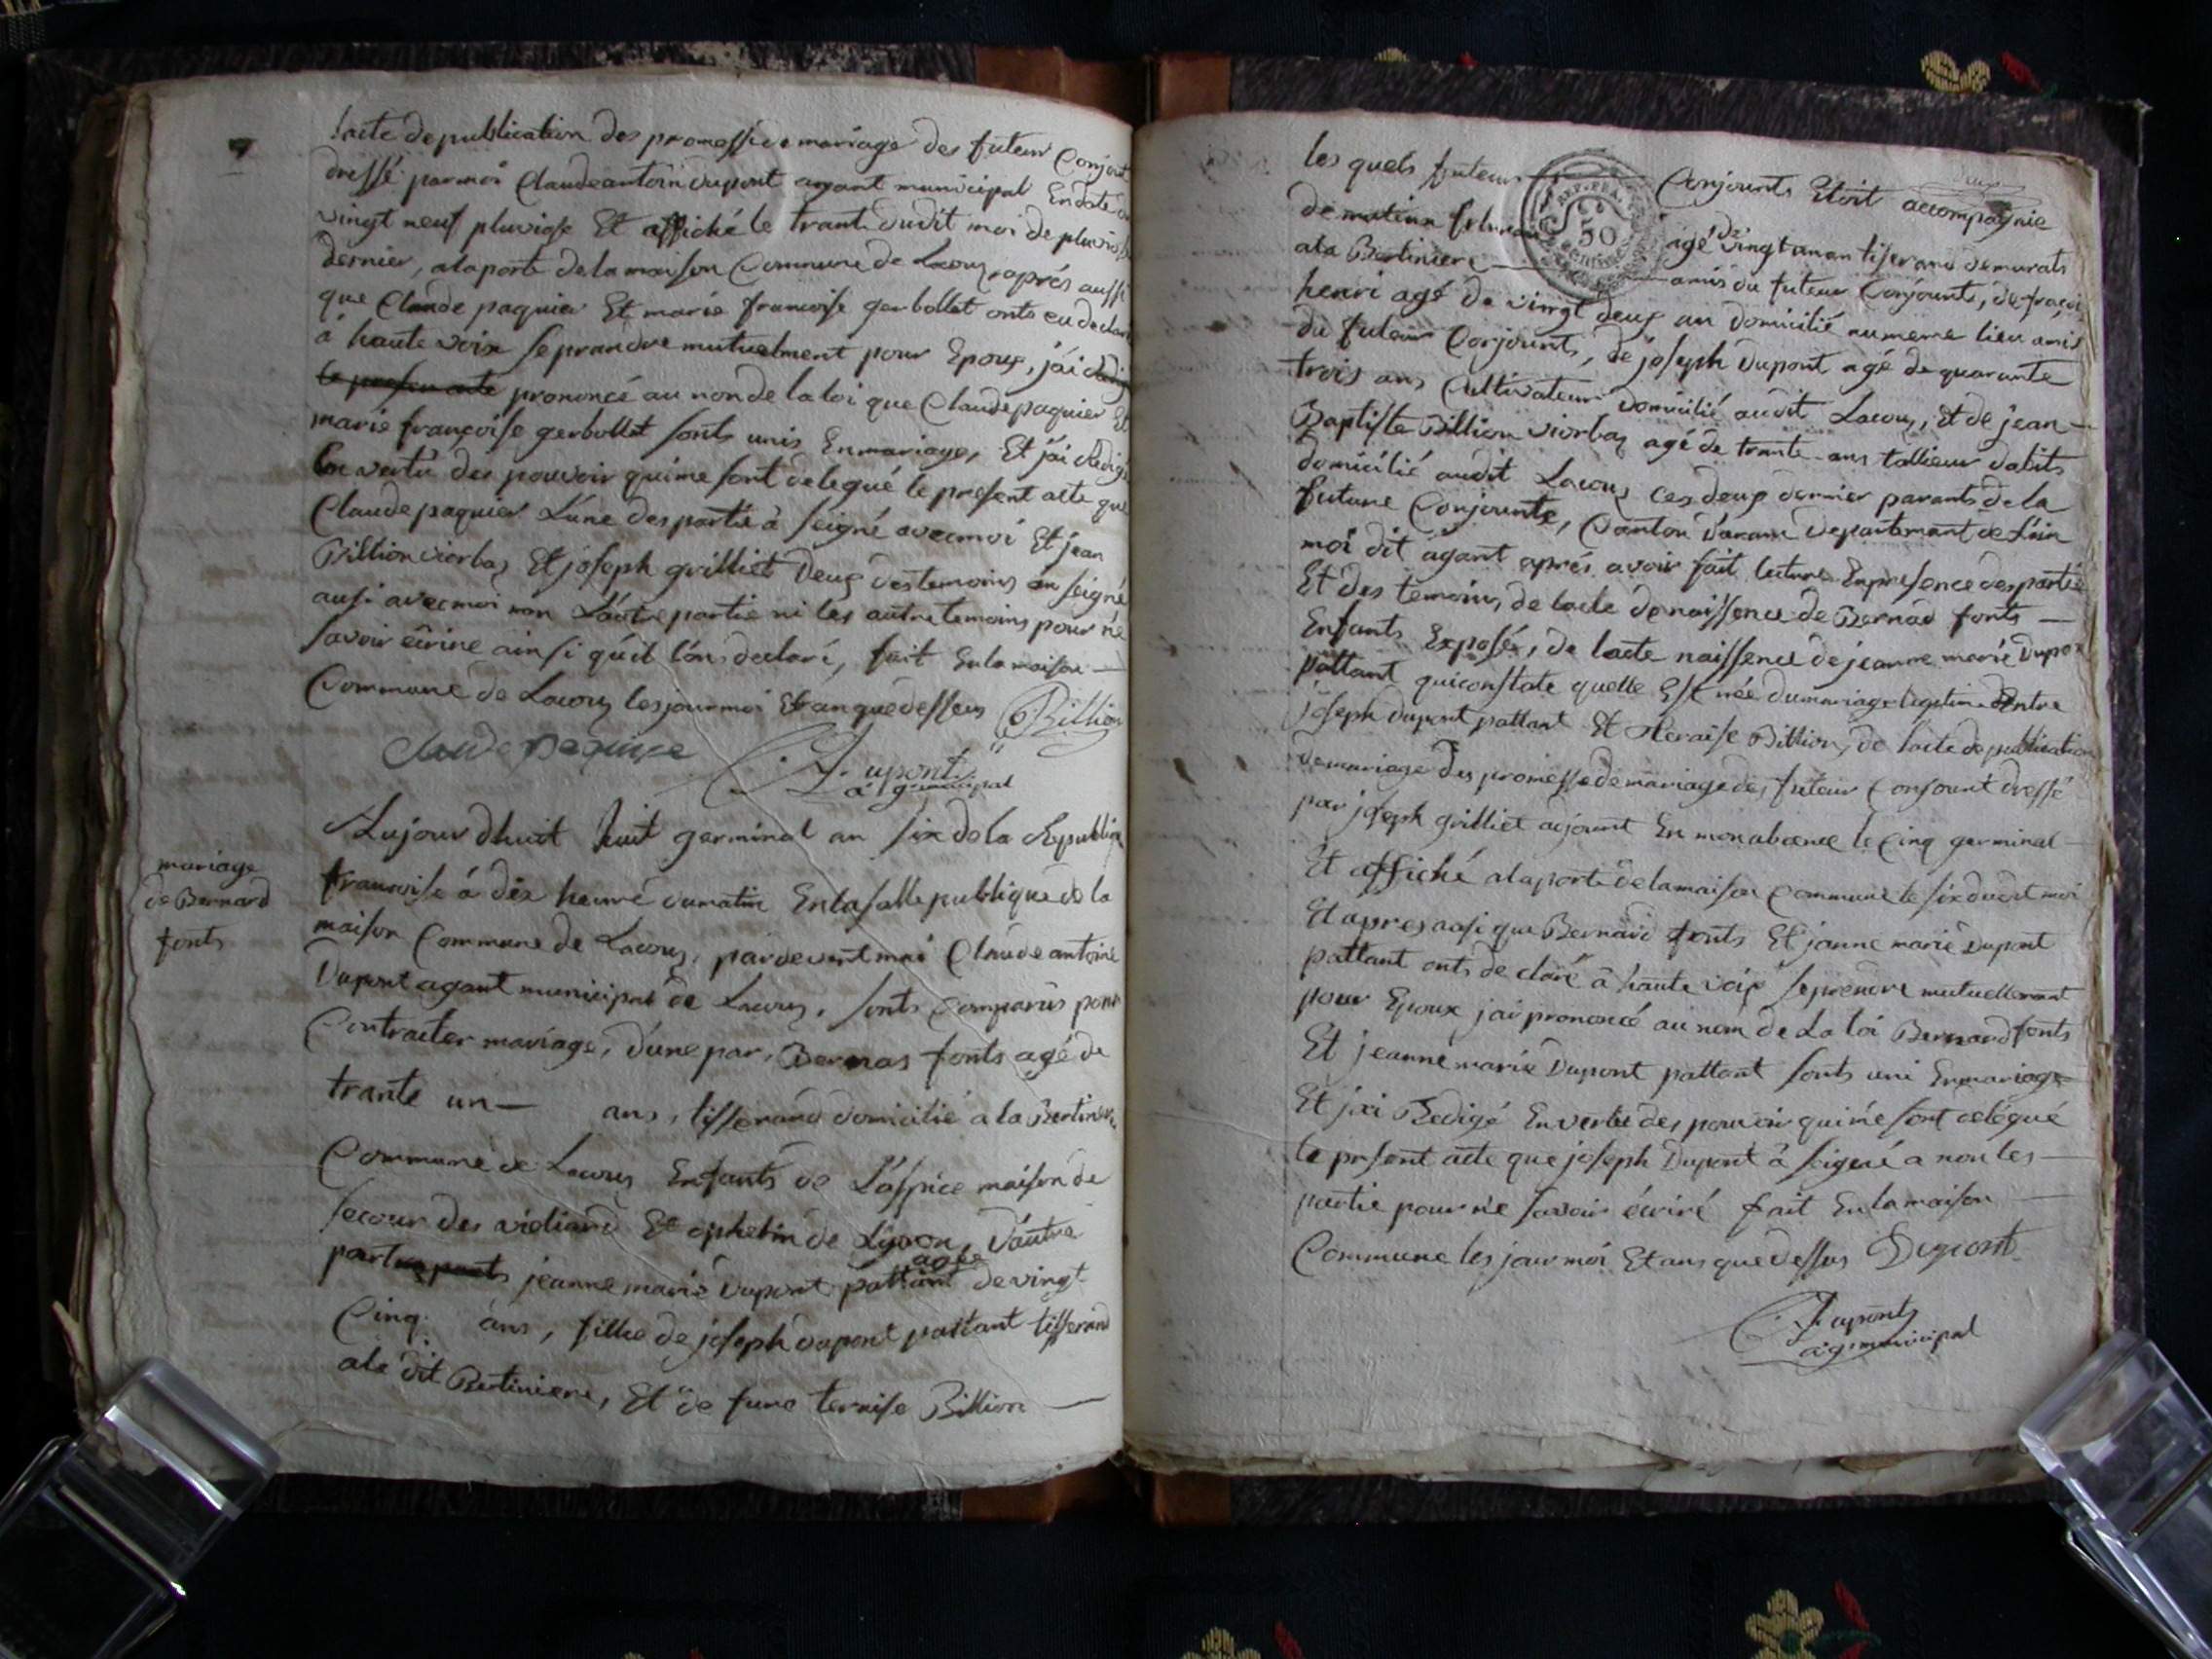 lacte de publication des promesse de mariage des futeur Conjoint
dressé par moi Claude antoin dupont agant municipal En date du
vingt neuf pluviose Et affiché le trant dudit moi de pluviose
dernier, a la porte de la maison Commune de Lacoux, aprés aussi
que Claude paquier Et marie francoise gerbollet onts eu declaré
à haute voix se prandre mutuelment pour Epoux, j'ai
prononcé au non de la loi que Claude paquier Et
marie françoise gerbollet sonts unis En mariage, Et j'ai Redigé
En vertu des pouvoir qui me sont delegué le present acte que
Claude paquier L'une des partie à seigné avec moi Et jean
Billion viorbas Et joseph grilliet deux des temoins on seigné
ausi avec moi non L'autre partie ni les autre temoins pour ne
savoir ecrire ainsi qu'il l'ons declaré, fait En la maison
Commune de Lacoux les jour moi Et an que dessus Billion
Claude paquier
Dupont
ag municipal
mariage
de Bernard
fonts
Aujourdhuit huit germinal an six de la Republique
francoise à dix heure du matin En la salle publique de la
maison Commune de Lacoux, pardevent moi Claude antoine
Dupont agant municipal de Lacoux, sonts Comparus pour
Contracter mariage, d'une par, Bernas fonts agé de
trante un ans, tisserand domicilié a la Bertiniere,
Commune de Lacoux Enfants de L'aspice maison de
secour des vieliard Et ophelin de Lyon, d'autre
part jeanne marie Dupont pattant agée de vingt
Cinq ans, fille de joseph dupont pattant tisserand
a la dit Bertiniere, Et de fune teraise Billion
les quels futeur Conjounts Etoit accompagnie
de matieu agé de vingt un an tiserand demurats
a la Bertiniere amis du futeur Conjounts, de françoi
henri agé de vingt deux an domicilié au meme lieu amis
du futeur Conjounts, de joseph Dupont agé de quarante
trois ans Cultivateur domicilié audit Lacoux, Et de jean
Baptiste Billion viorbas agé de trante ans tallieur dabits
domicilié audit Lacoux ces deux dernier parants de la
future Conjounte, Canton d'arane Departemant de L'ain
moi dit agant aprés avoir fait lecture En presence des partie
Et des temoins, de lacte de naissence de Bernad fonts
Enfants Exposés, de lacte naissence de jeanne marie Dupont
pattant qui constate quelle Est née du mariage legitime Dentre
joseph Dupont pattant Et teraise Billion, de lacte de publication
de mariage des promesse de mariage des futeur Conjount dressé
par joseph grilliet adjount En mon absence le Cinq germinal
Et affiché a la porte de la maison Commune le six dudit moi
Et apres ausi que Bernard fonts Et janne marie Dupont
pattant onts declaré à haute voix se prendre mutuellemant
pour Epoux j'ai prononcé au nom de La loi Bernard fonts
Et jeanne marie Dupont pattant sonts uni En mariage
Et j'ai Redigé En vertu des pouvoir qui me sont delégué
le present acte que joseph Dupont à seigné a non les
partie pour ne savoir écriré fait En la maison
Commune les jour moi Et ans que dessus Dupont
Dupont
ag municipal